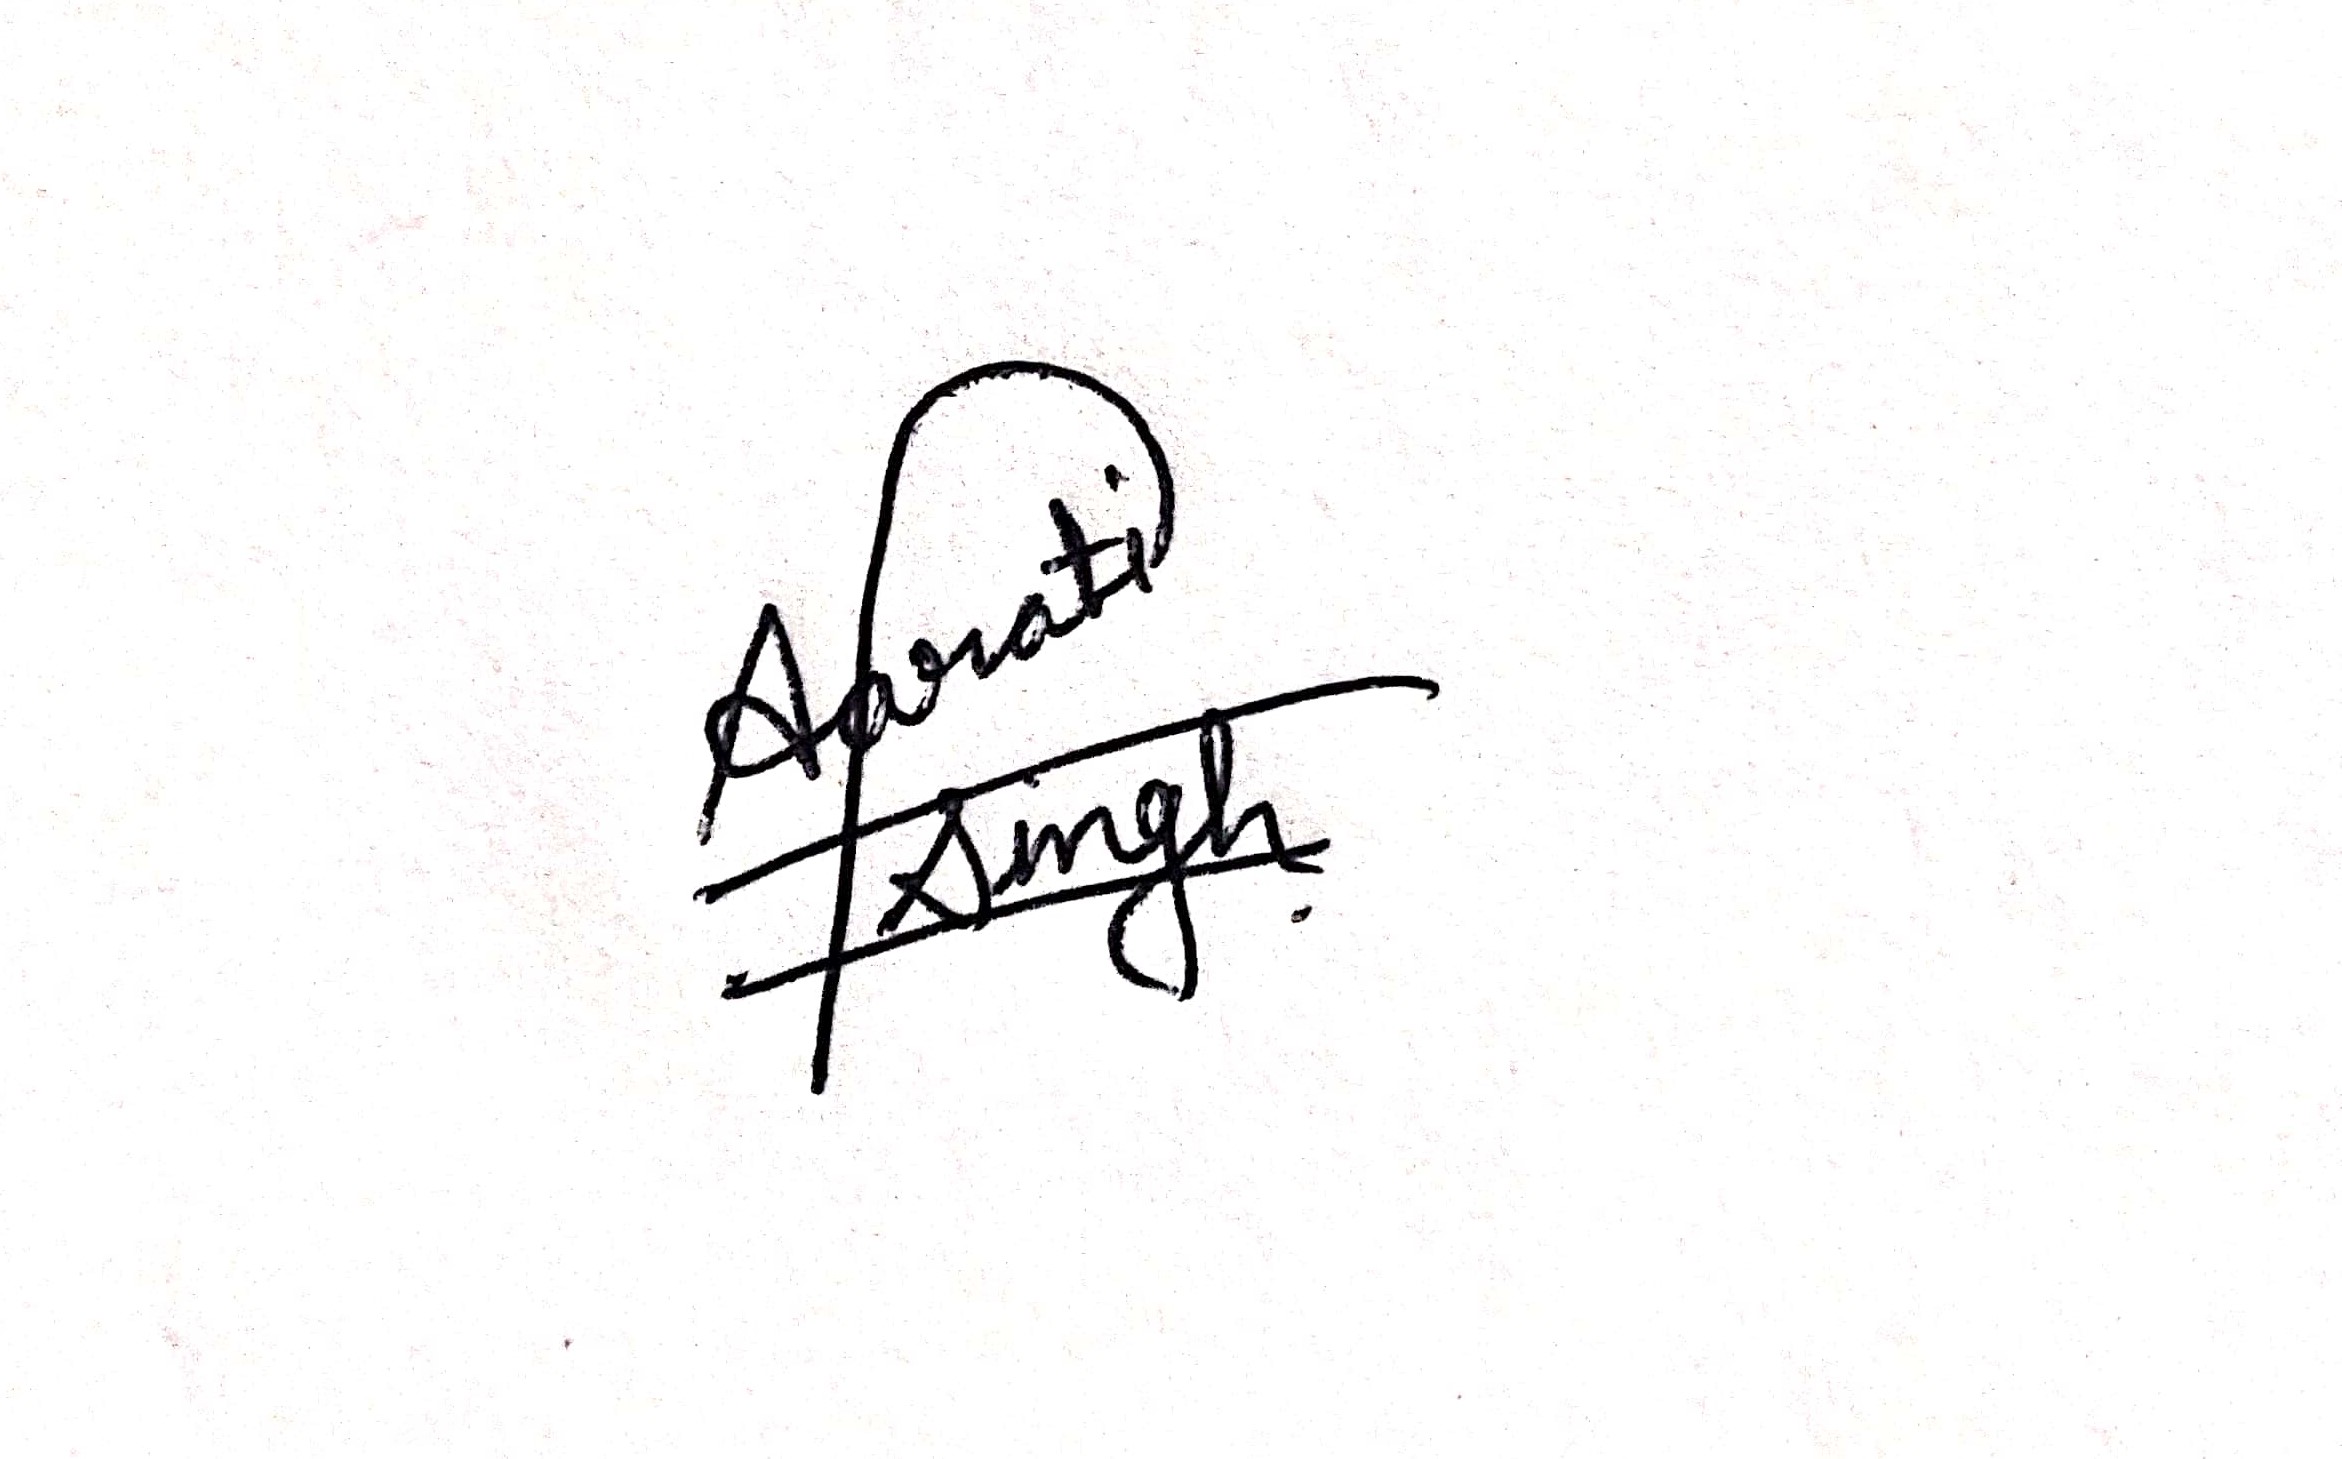 Aarati
Singh.